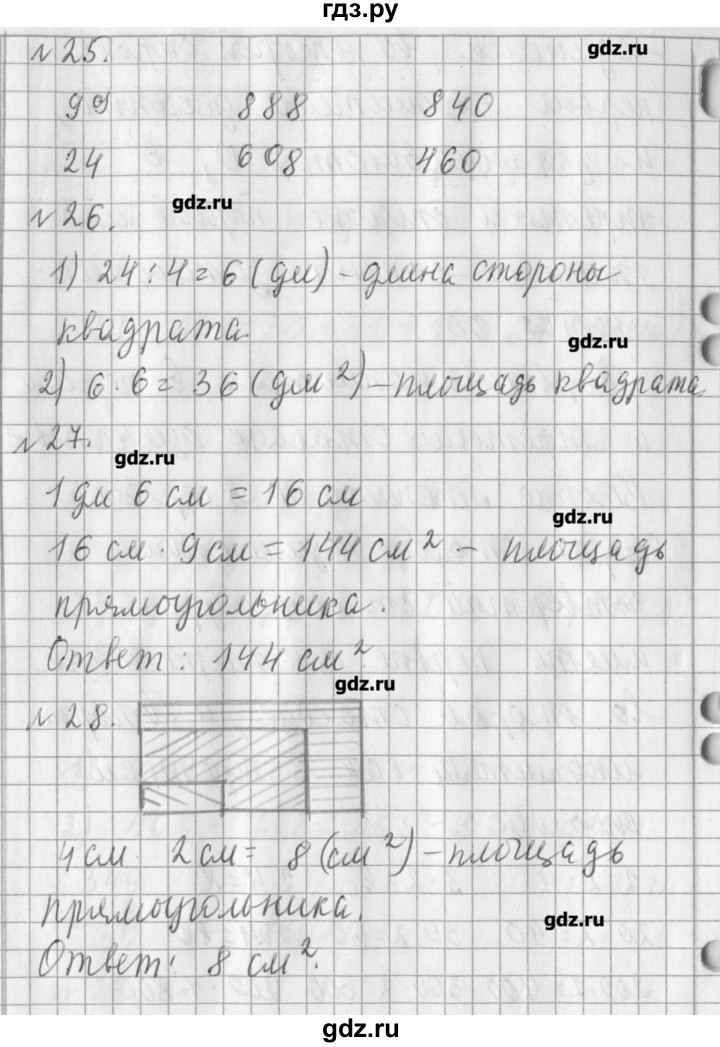 гдз.ру
№25. gdz.ru
99 888 840
24 608 460
gdz.ru
№26.
1) 24:4=6(дм) – длина стороны
квадрата.
gdz.ru
2) 6·6=36(дм²) – площадь квадрата.
№27.
gdz.ru
1 дм 6 см = 16 см
gdz.ru
16 см · 9 см = 144 см² – площадь
прямоугольника.
Ответ: 144 см².
gdz.ru
№28.
4 см · 2 см = 8 (см²) – площадь
прямоугольника.
gdz.ru
Ответ: 8 см².
gdz.ru